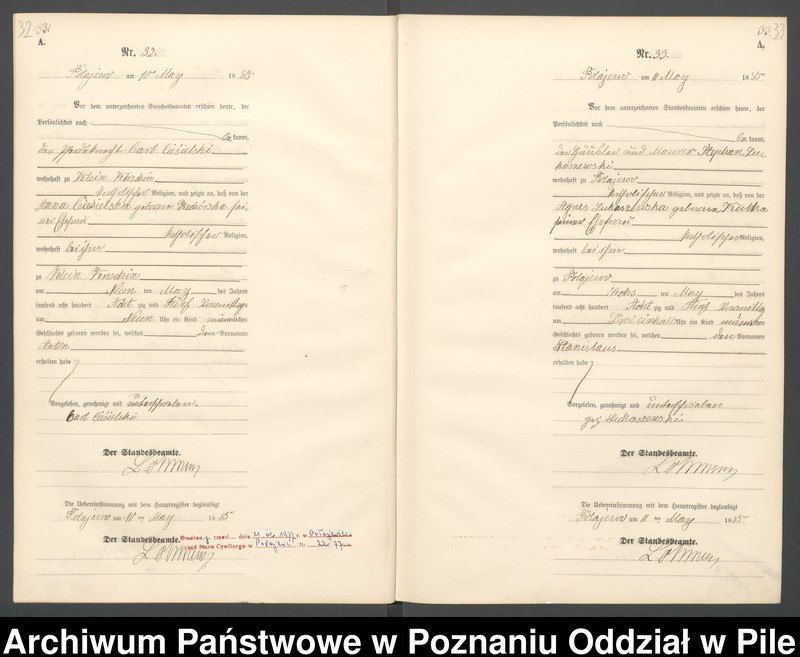 32
A.
Nr. 32.
Polajewo am 10 ten May 1885
Vor dem unterzeichneten Standesbeamten erschien heute, der
Persönlichkeit nach
bekannt,
den Pferdeknecht Carl Ciesielski
wohnhaft zu Klein
katholischer Religion, und zeigte an, daß von der
Ciesielska geborene sei-
ner Ehefrau
katholischer Religion,
wohnhaft bei ihm
zu Klein
am Neun ten May des Jahres
tausend acht hundert Acht zig und Fünf Vormittags
um Neun Uhr ein Kind männlichen
Geschlechts geboren worden sei, welches den Vornamen
Anton
erhalten habe
Vorgelesen, genehmigt und unterschrieben
Carl Ciesielski
Der Standesbeamte.
Die Uebereinstimmung mit dem Hauptregister beglaubigt
Polajewo am 10 ten May 1885
Der Standesbeamte.
zmarł dnia 1977 r. w Połajewie
Urząd Stanu Cywilnego w Połajewie nr. 22/77
33
A.
Nr. 33.
Polajewo am 11 May 1885
Vor dem unterzeichneten Standesbeamten erschien heute, der
Persönlichkeit nach
bekannt,
den Häusler und Maurer Stephan Lu-
kaszewski
wohnhaft zu Polajewo
katholischer Religion, und zeigte an, daß von der
Agnes Lukaszewska geborene
seiner Ehefrau
katholischer Religion,
wohnhaft bei ihm
zu Polajewo
am Sechs ten May des Jahres
tausend acht hundert Acht zig und Fünf Vormittags
um Drei einhalb Uhr ein Kind männlichen
Geschlechts geboren worden sei, welches den Vornamen
Stanislaus
erhalten habe
Vorgelesen, genehmigt und unterschrieben
gez Lukaszewski
Der Standesbeamte.
Die Uebereinstimmung mit dem Hauptregister beglaubigt
Polajewo am 11 ten May 1885
Der Standesbeamte.
Archiwum Państwowe w Poznaniu Oddział w Pile